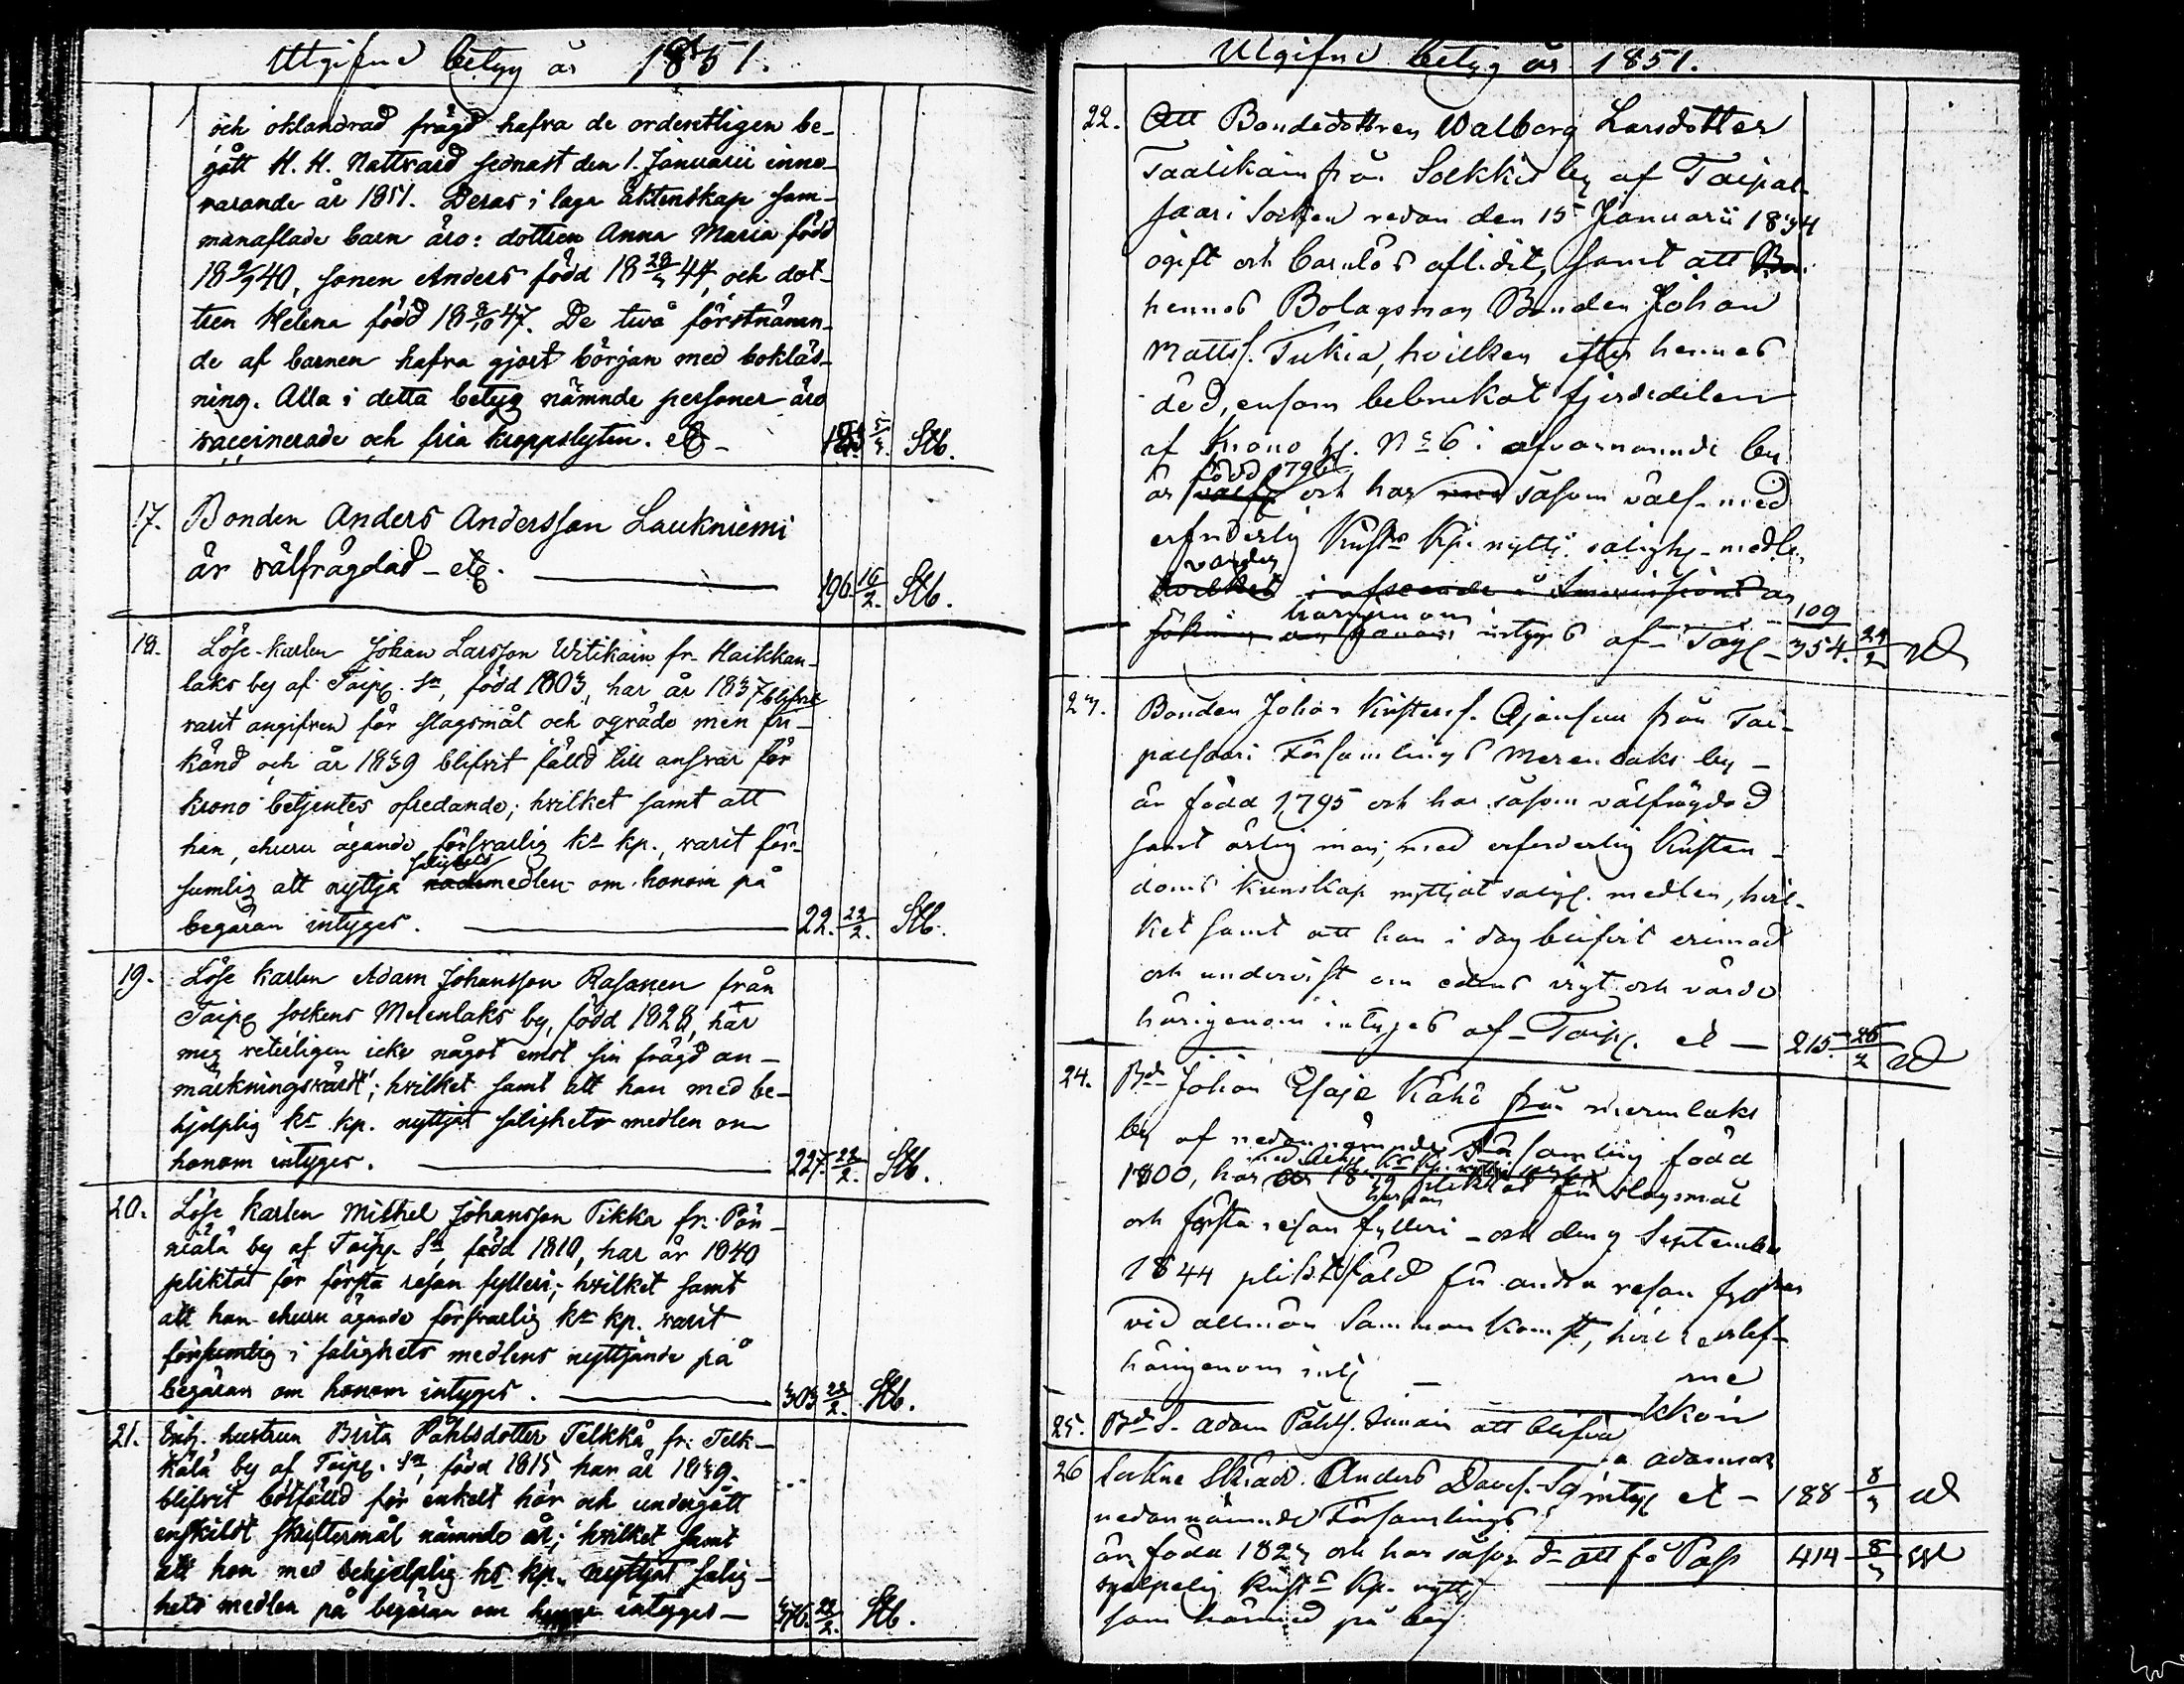 Utgifne betyg år 1851.
och oklandrad frägd hafva de ordentligen be-
gått H. H. Nattvard sednast den 1. Januarii inne-
varande år 1851. Deras i laga äktenskap sam-
manaflade barn äro: dottren Anna Maria född
18 9/9 40, sonen Anders född 18 28/3 44, och dot-
tren Helena född 18 8/10 47. De två förstnämn-
de af barnen hafva gjort början med bokläs-
ning. Alla i detta betyg nämnde personer äro
vaccinerade och fria kroppslyten. etc - Stb.
17. Bonden Anders Andersson Laukniemi
är välfrägdad - etc. 196. 16/2. Stb.
18. Löse-karlen Johan Larsson Witikain fr. Haikkan-
laks by af Taip. Sn, född 1803, har år 1837 blifvit
varit angifven för slagsmål och ogräde men fri-
känd och år 1839 blifvit fälld till ansvar för
krono betjentes ofredande; hvilket samt att
han, ehuru ägande försvarlig kr kp., varit för-
salighets
sumlig att nyttja nademedlen om honom på
begäran intyges. 22. 22/2. Stb.
19. Löse karlen Adam Johansson Rasanen från
Taip sockens Merenlaks by, född 1828, har
mig veterligen icke något emot sin frägd an-
märkningsvärdt; hvilket samt att han med be-
hjelplig kr kp. nyttjat salighets medlen om
honom intyges. 227. 22/2. Stb.
20. Löse karlen Mithel Johansson Tikka fr. Pön-
niälä by af Taip. Sn, född 1810, har år 1840
pliktat för första resan fylleri; hvilket samt
att han ehuru ägande försvarlig kr kp. varit
försumlig i salighets medlens nyttjande på
begäran om honom intyges. 303 22/2. Stb.
21. Enk. hustrun Brita Påhlsdotter Telkkä fr. Telk-
kälä by af Taip. Sn, född 1815, har år 1839.
blifvit botfälld för enkelt hor och undergått
enskildt skriftermål nämnde år; hvilket samt
att hon med behjelplig kr kp. nyttjat salig-
hets medlen på begäran om henne intyges - 376. 22/2. Stb.
Utgifne betyg år 1851.
22. Att Bondedottren Walborg Larsdotter
Taalikain från Solkkis by af Taipal-
saari Socken redan den 15 Januarii 1834
ogift och barnlös aflidit, samt att
hennes Bolagsman Bonden Johan
Matts. Tukia, hvilken efter hennes
död, ensam bebrukat fjerdedelen
af Krono h. No 6 i ofvannämnde by
född 1796
är välf och har med såsom välf- med
erforderlig Krist Kp. nyttj. saligh- medl.
varder
hvilket i afseende å an
härigenom 109
intyges af - Taip - 354. 24/2
23. Bonden Johan Kristers. Ojansuu från Tai-
palsaari Församlings Merenlaks by -
är född 1795 och har såsom välfrägdad
samt ärlig man, med erforderlig Kristen-
doms kunskap nyttjat salig. medlen, hvil-
ket samt att han i dag blifvit erinrad
och undervist om edens vigt och värde
härigenom intyges af - Taip. et - 215. 26/2
24. Bd Johan Esaja Kähö från Merenlaks
by af nedannämnde Församling född
1800, har 18 pliktat för slagsmål
och första resan fylleri - och den 9 September
1844 pliktfäld för andra resan
vid allmän Sammankomst,
härigenom
25. Bd S. Adam Påhls. att blifva
188 8/3
26 Sockne Skräd. Anders Davids. intyg et -
nedannämnde Församlings
är född 1827 och har såsom att få Pass 414 8/3
hjelpelig Krist Kp. nyttj
som härmed på beg